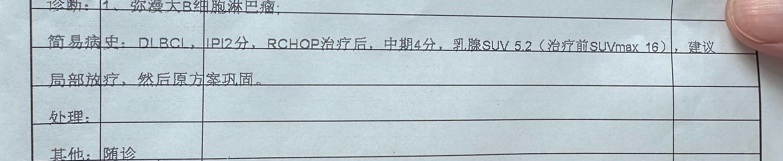 诊断：1、弥漫大B细胞淋巴瘤；
简易病史：DLBCL，IPI2分，RCHOP治疗后，中期4分，乳腺SUV 5.2（治疗前SUVmax 16），建议
局部放疗，然后原方案巩固。
处理：
其他：随诊